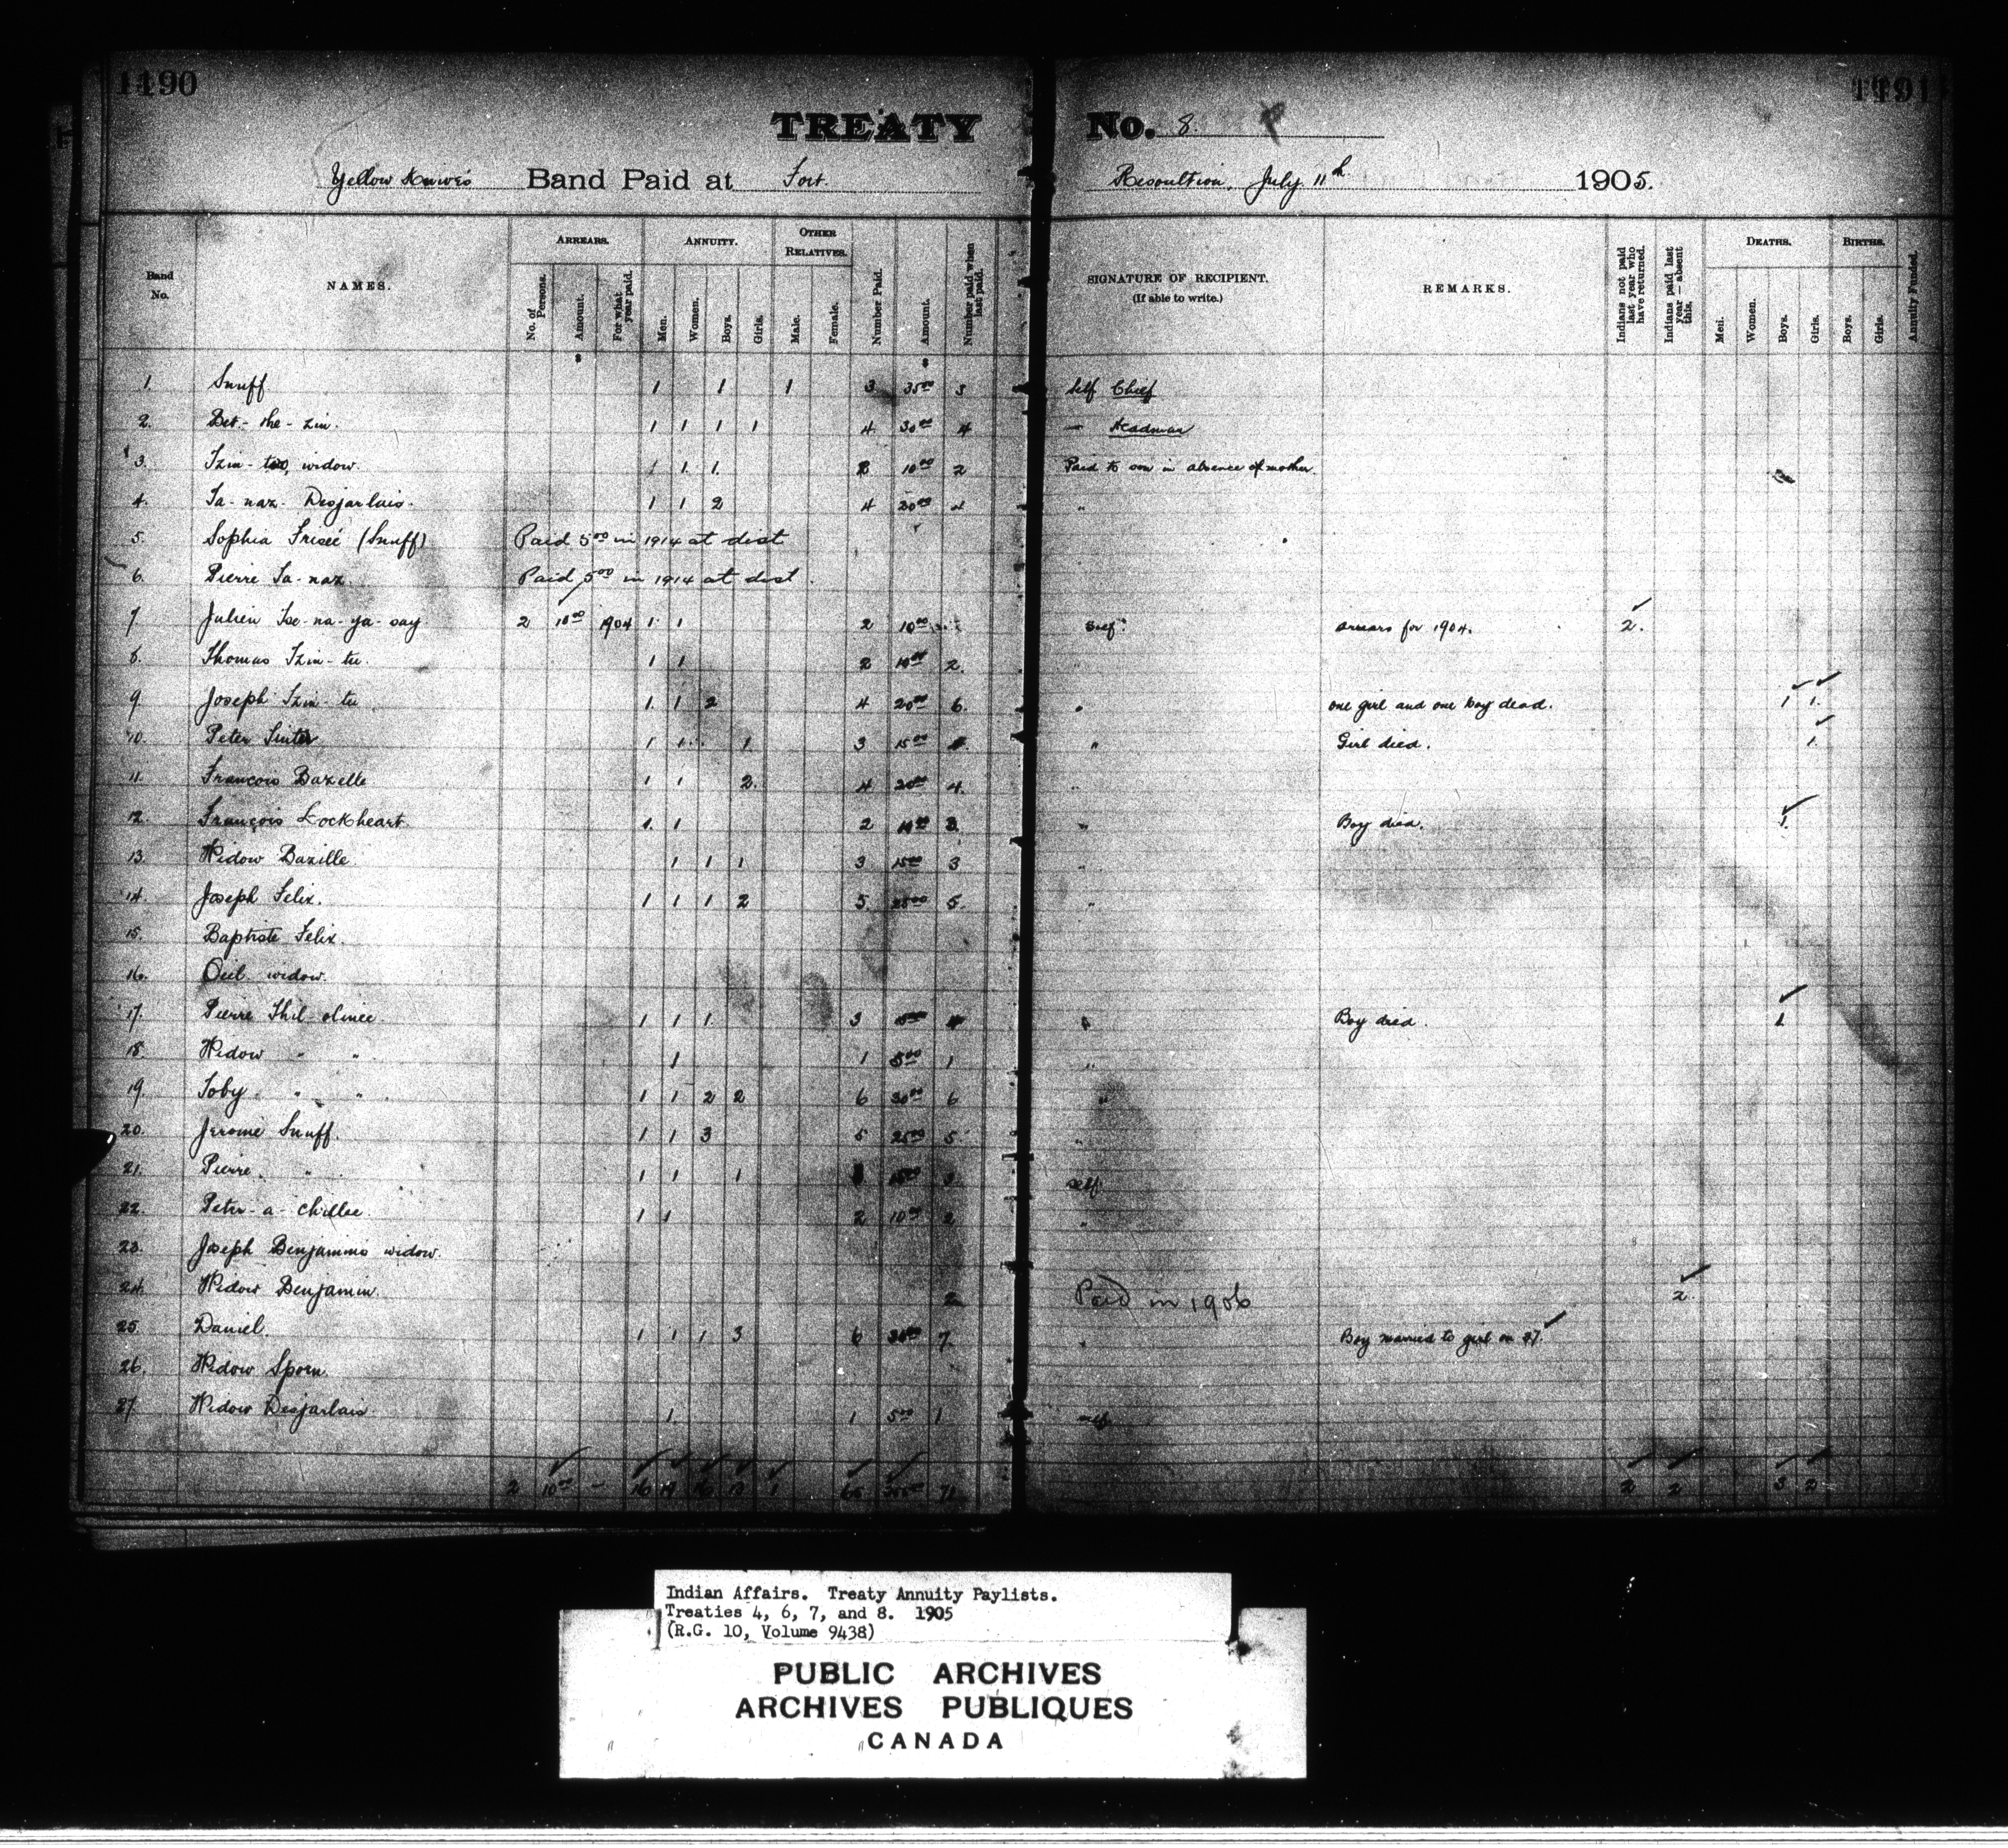 1190
1191
TREATY No. 8.
Yellow Knives Band Paid at Fort Resoultion, July 11th 1905.
Band No. NAMES. ARREARS. No. of Persons. Amount. For what year paid. ANNUITY. Men. Women. Boys. Girls. OTHER RELATIVES. Male. Female. Number Paid. Amount. Number paid when last paid. SIGNATURE OF RECIPIENT. (If able to write.) REMARKS. Indians not paid last year who have returned. Indians paid last year — absent this. DEATHS. Men. Women. Boys. Girls. BIRTHS. Boys. Girls. Annuity Funded.
$ $
1. Snuff 1 1 1 3 35.00 3 self Chief
2. Bet-the-zin. 1 1 1 1 4 30.00 4 — Headman
3. Tzin-too, widow. 1 1. 2 10.00 2 Paid to son in absence of mother.
4. Ta-naz-Desjarlais. 1 1 2 4 20.00 4 "
5. Sophia Frisée (Snuff) Paid 5.00 in 1914 at dist
6. Pierre Ta-naz. Paid 5.00 in 1914 at dist.
7. Julien Tse-na-ya-say 2 10.00 1904 1 1 2 10.00 Self. arrears for 1904. 2.
8. Thomas Tzin-tu. 1 1 2 10.00 2 "
9. Joseph Tzin-tu 1. 1 2 4 20.00 6. " one girl and one boy dead. 1 1.
10. Peter 1 1 1 3 15.00 " Girl died. 1.
11. Francois Bazelle 1 1 2. 4 20.00 4. "
12. François Lockheart. 1. 1 2 10.00 3. " Boy died. 1.
13. Widow Bazille 1 1 1 3 15.00 3 "
14. Joseph Felix. 1 1 1 2 5 25.00 5. "
15. Baptiste Felix.
16. Oeil widow.
17. Pierre 1 1 1. 3 " Boy died. 1
18. Widow " " 1 1 5.00 1 "
19. Toby " " 1 1 2 2 6 30.00 6 "
20. Jerome Snuff. 1 1 3 5 25.00 5 "
21. Pierre. " 1 1 1 self
22. Peter-a-Chillee. 1 1 2 10.00 2 "
23. Joseph Benjamins widow.
24. Widow Benjamin. 2 Paid in 1906 2.
25. Daniel. 1 1 1 3 6 30.00 7. " Boy married to girl on 27.
26. Widow Sporn.
27. Widow Desjarlais 1. 1 5.00 1 self
2 10.00 — 16 19 16 13 1 65 71 2 2 3 2
Indian Affairs. Treaty Annuity Paylists.
Treaties 4, 6, 7, and 8. 1905
(R.G. 10, Volume 9438)
PUBLIC ARCHIVES
ARCHIVES PUBLIQUES
CANADA